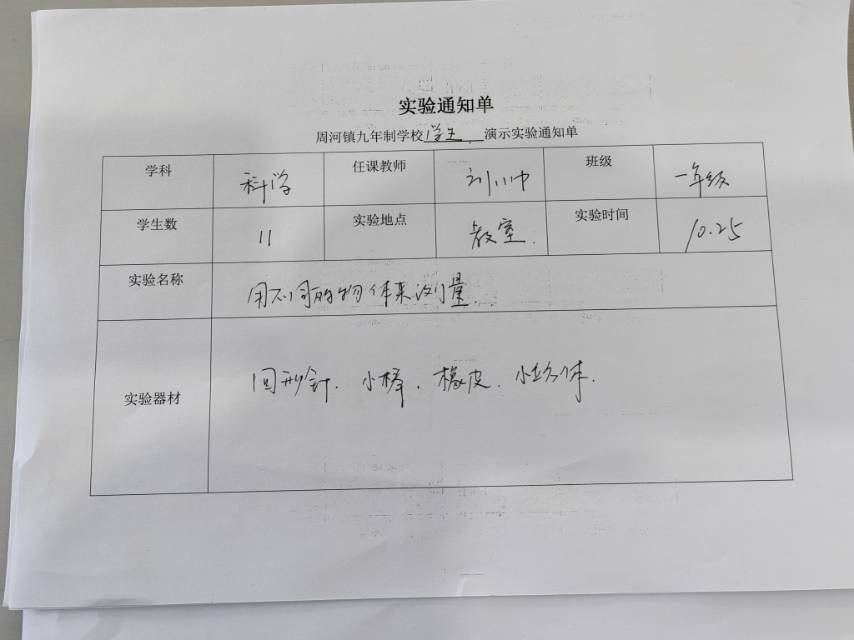 实验通知单
周河镇九年制学校学生演示实验通知单
学科 科学 任课教师 刘小帅 班级 一年级
学生数 11 实验地点 教室. 实验时间 10.25
实验名称 用不同的物体来测量
实验器材 回形针. 小棒. 橡皮. 小立方体.